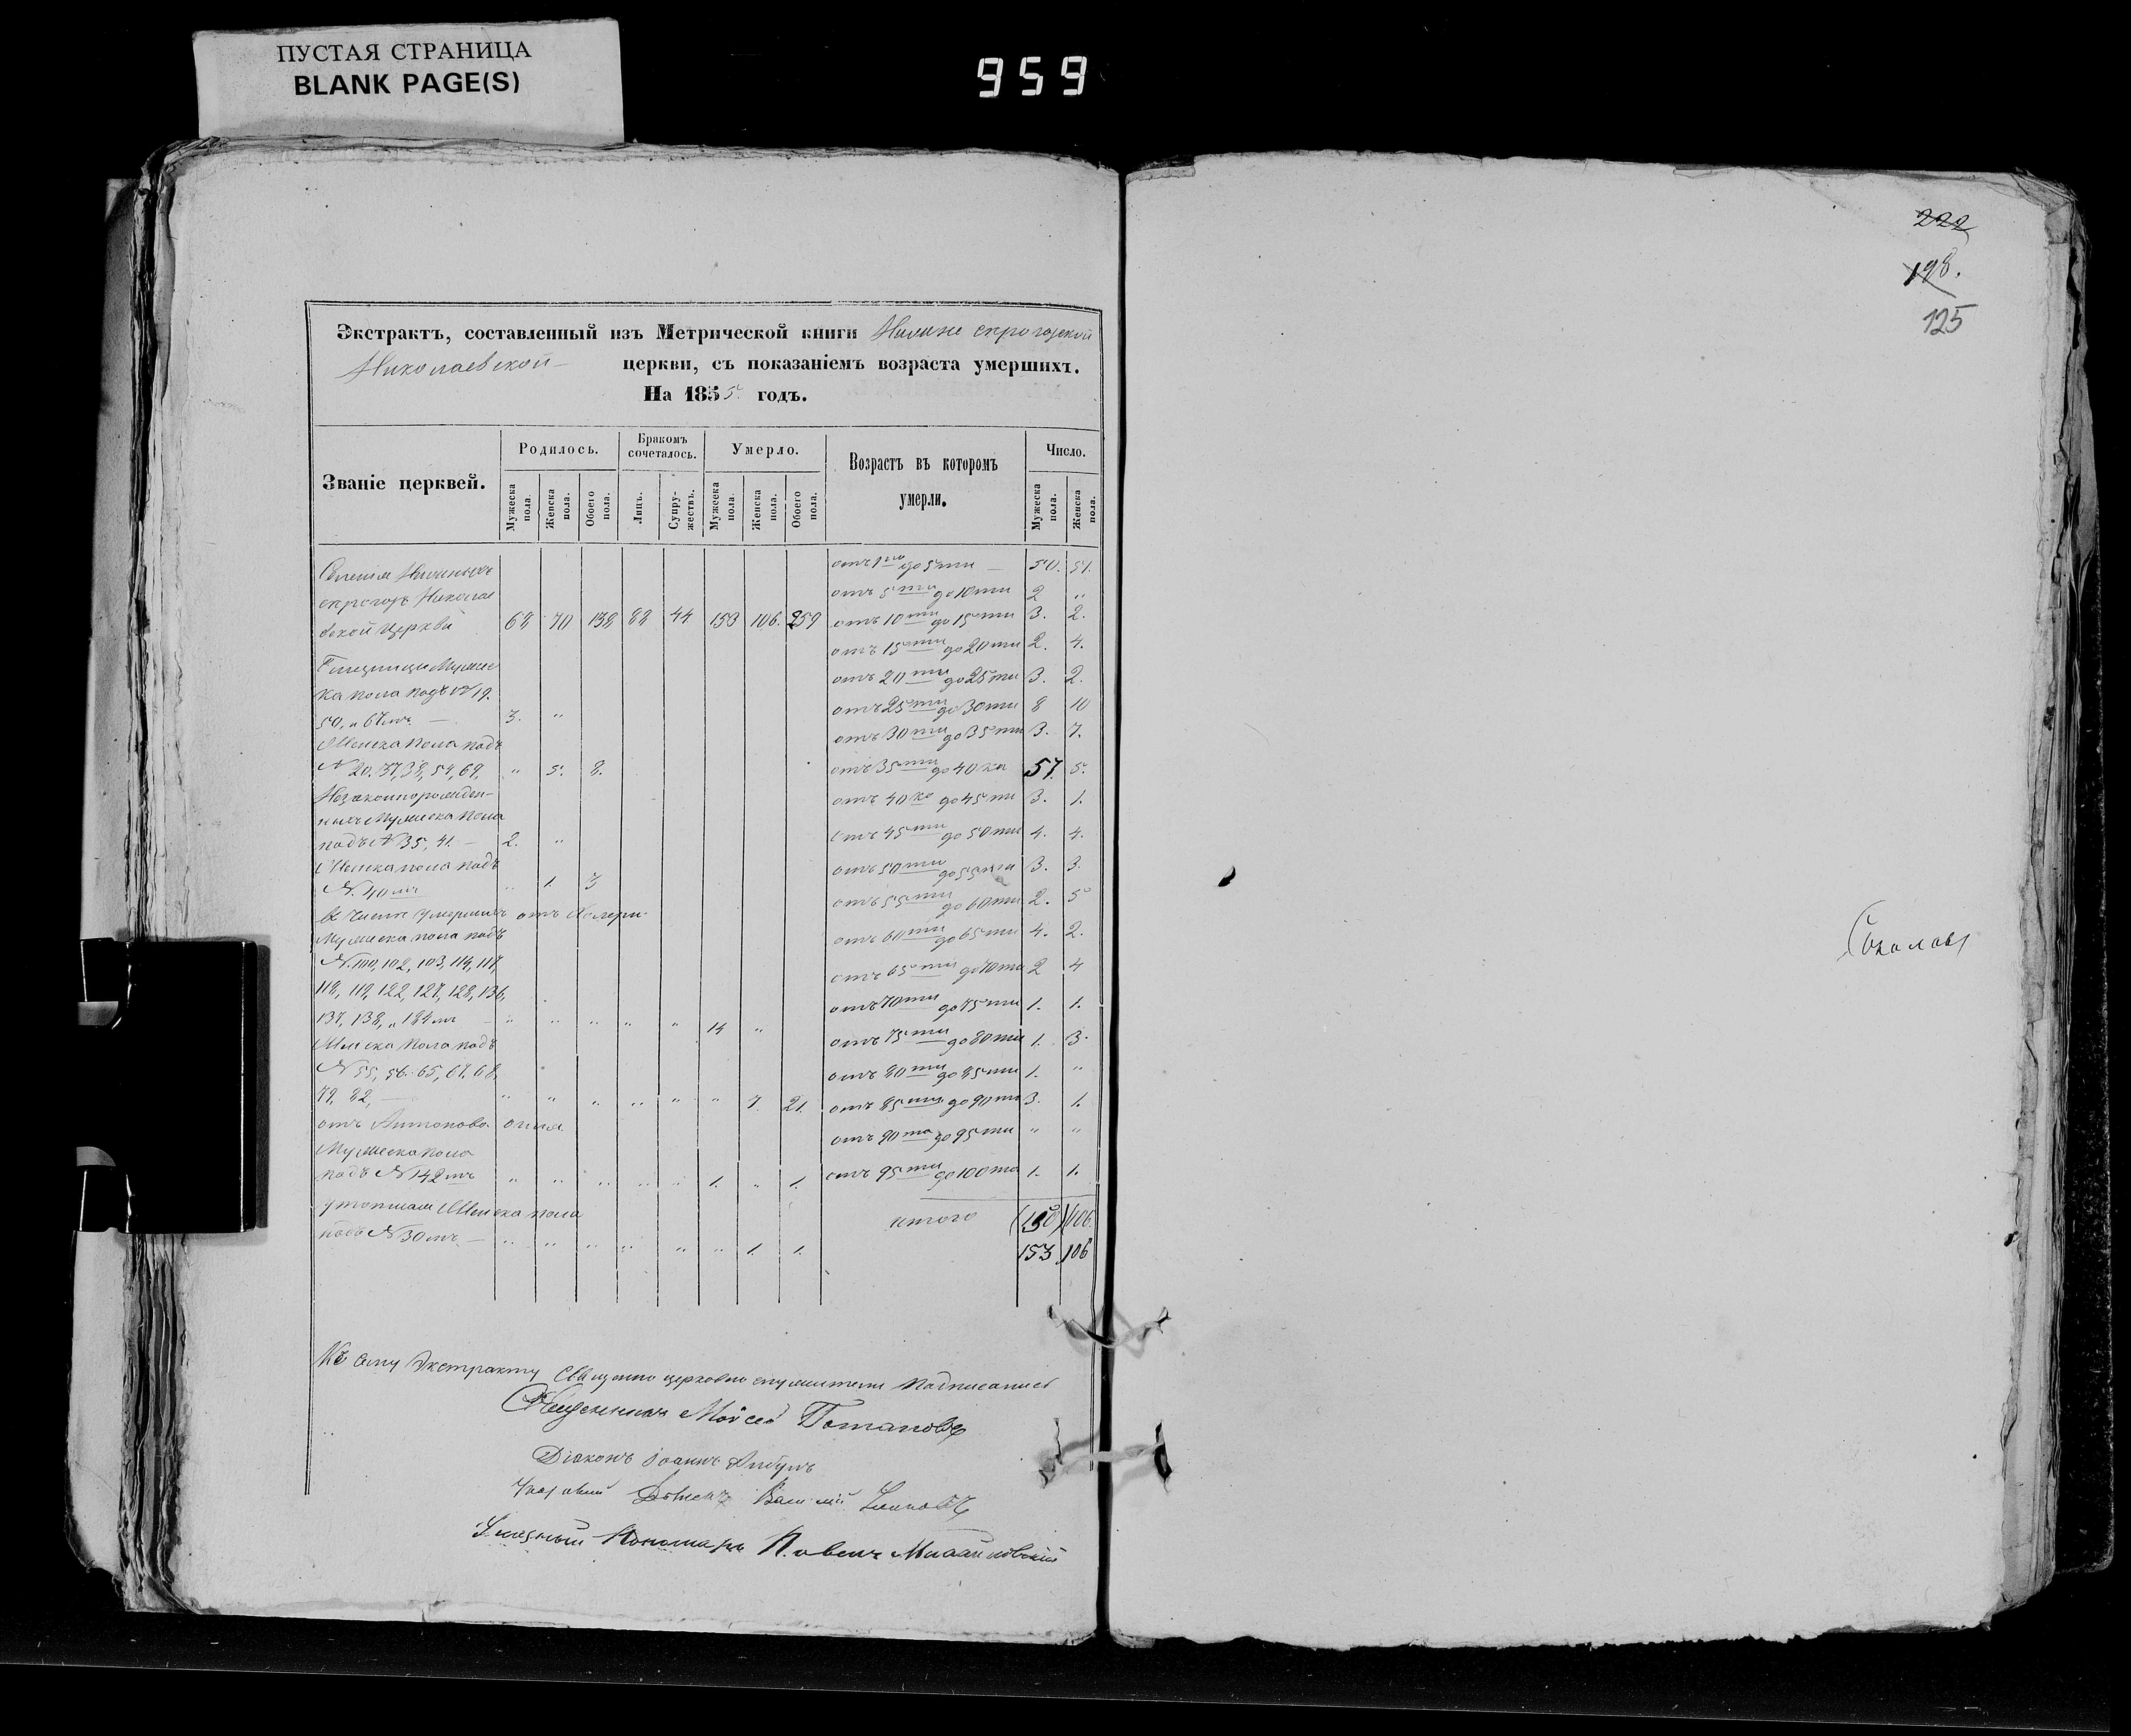 ПУСТАЯ СТРАНИЦА
BLANK PAGE(S)
959
222
198.
125
Экстрактъ, составленный изъ Метрической книги
Николаевской церкви, съ показаніемъ возраста умершихъ.
На 1855 годъ.
Званіе церквей.
Родилось.
Бракомъ сочеталось.
Умерло.
Возрастъ въ которомъ умерли.
Число.
Мужеска пола.
Женска пола.
Обоего пола.
Лицъ.
Супружествъ.
Мужеска пола.
Женска пола.
Обоего пола.
Мужеска пола.
Женска пола.
отъ 1го до 5ти — 50. 51.
отъ 5ти до 10ти 2 "
ской церкви 68 70 138 88 44 153 106. 259 отъ 10ти до 15ти 3. 2.
отъ 15ти до 20ти 2. 4.
Близнецы Мужес
ка пола подъ № 19. отъ 20ти до 25ти 3. 2.
50, и 67мъ — 3. " отъ 25ти до 30ти 8 10
Женска пола подъ отъ 30ти до 35ти 3. 7.
N 20. 37, 38, 54, 69, " 5. 8. отъ 35ти до 40ка 57. 5.
Незаконнорожден- отъ 40ка до 45ти 3. 1.
ныхъ Мужеска пола
подъ N 35, 41. — 2. " отъ 45ти до 50ти 4. 4.
Женска пола подъ отъ 50ти до 55ти 3. 3.
N. 40мъ " 1. 3
въ числе умершихъ отъ Холеры отъ 55ти до 60ти 2. 5
Мужеска пола подъ отъ 60ти до 65ти 4. 2.
N. 100, 102, 103, 114, 117, отъ 65ти до 70ти 2 4
118, 119, 122, 127, 128, 136, отъ 70ти до 75ти 1. 1.
137, 138, и 184мъ " " " " " 14 "
Женска пола подъ отъ 75ти до 80ти 1. 3.
N 55, 56. 65, 67. 68. отъ 80ти до 85ти 1. "
79, 82, — " " " " " " 7. 21. отъ 85ти до 90та 3. 1.
отъ Антонова огня отъ 90та до 95ти " "
Мужеска пола
подъ N 142мъ " " " " " 1. " 1. отъ 95ти до 100та 1. 1.
утопшая Женска пола итого (150) (106.
подъ N 30мъ — " " " " " " 1. 1. 153 106
Къ сему Экстракту Священно церковно служители подписались
Священникъ Моисей Потаповъ
Діаконъ Іоаннъ
Пономарь Павелъ
Соколовъ